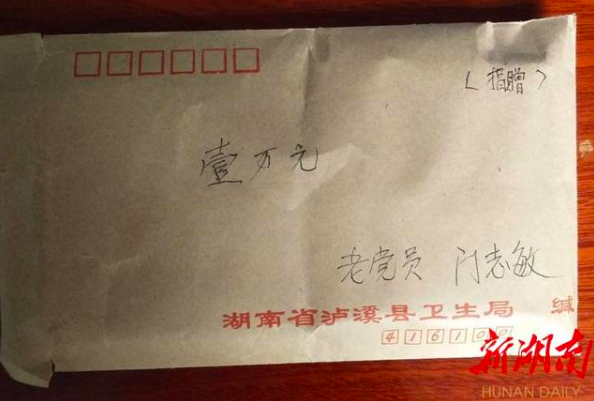 （捐赠）
壹万元
老党员 门志敏
湖南省泸溪县卫生局 缄
416100
新湖南
HUNAN DAILY